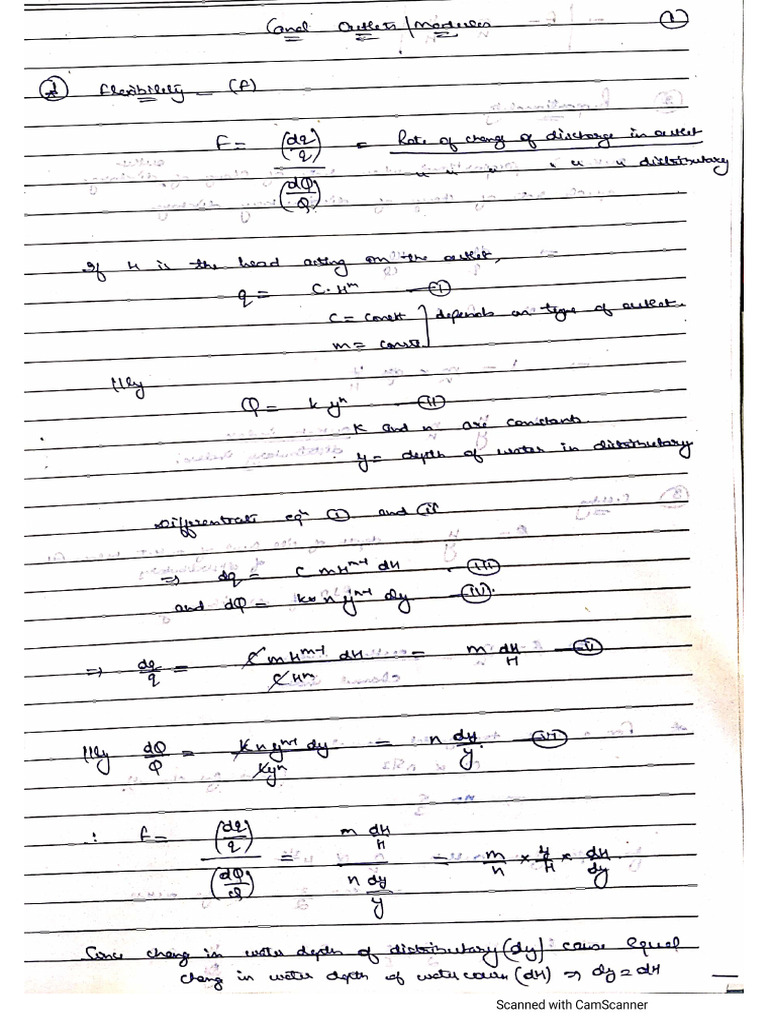 Canal Outlets/Modules ①
① Flexibility - (F)
F = (dq/q) / (dQ/Q) = Rate of change of discharge in outlet / " " " " " " distributary
If H is the head acting on the outlet,
q = C.H^m — ⓘ
C = const } depends on type of outlet.
m = const
|||ly
Q = k y^n — ⓘⓘ
K and n are constants
y = depth of water in distributary
Differentiate eqn ⓘ and ii
⇒ dq = C m H^m-1 dH — (III)
and dQ = k n y^n-1 dy — (IV).
⇒ dq/q = C m H^m-1 dH / C H^m = m dH/H — (V)
|||ly dQ/Q = K n y^n-1 dy / K y^n = n dy/y. — (VI)
∴ F = (dq/q) / (dQ/Q) = (m dH/H) / (n dy/y) = m/n × y/H × dH/dy
Since change in water depth of distributary (dy) cause equal
change in water depth of water course (dH) ⇒ dy = dH
Scanned with CamScanner